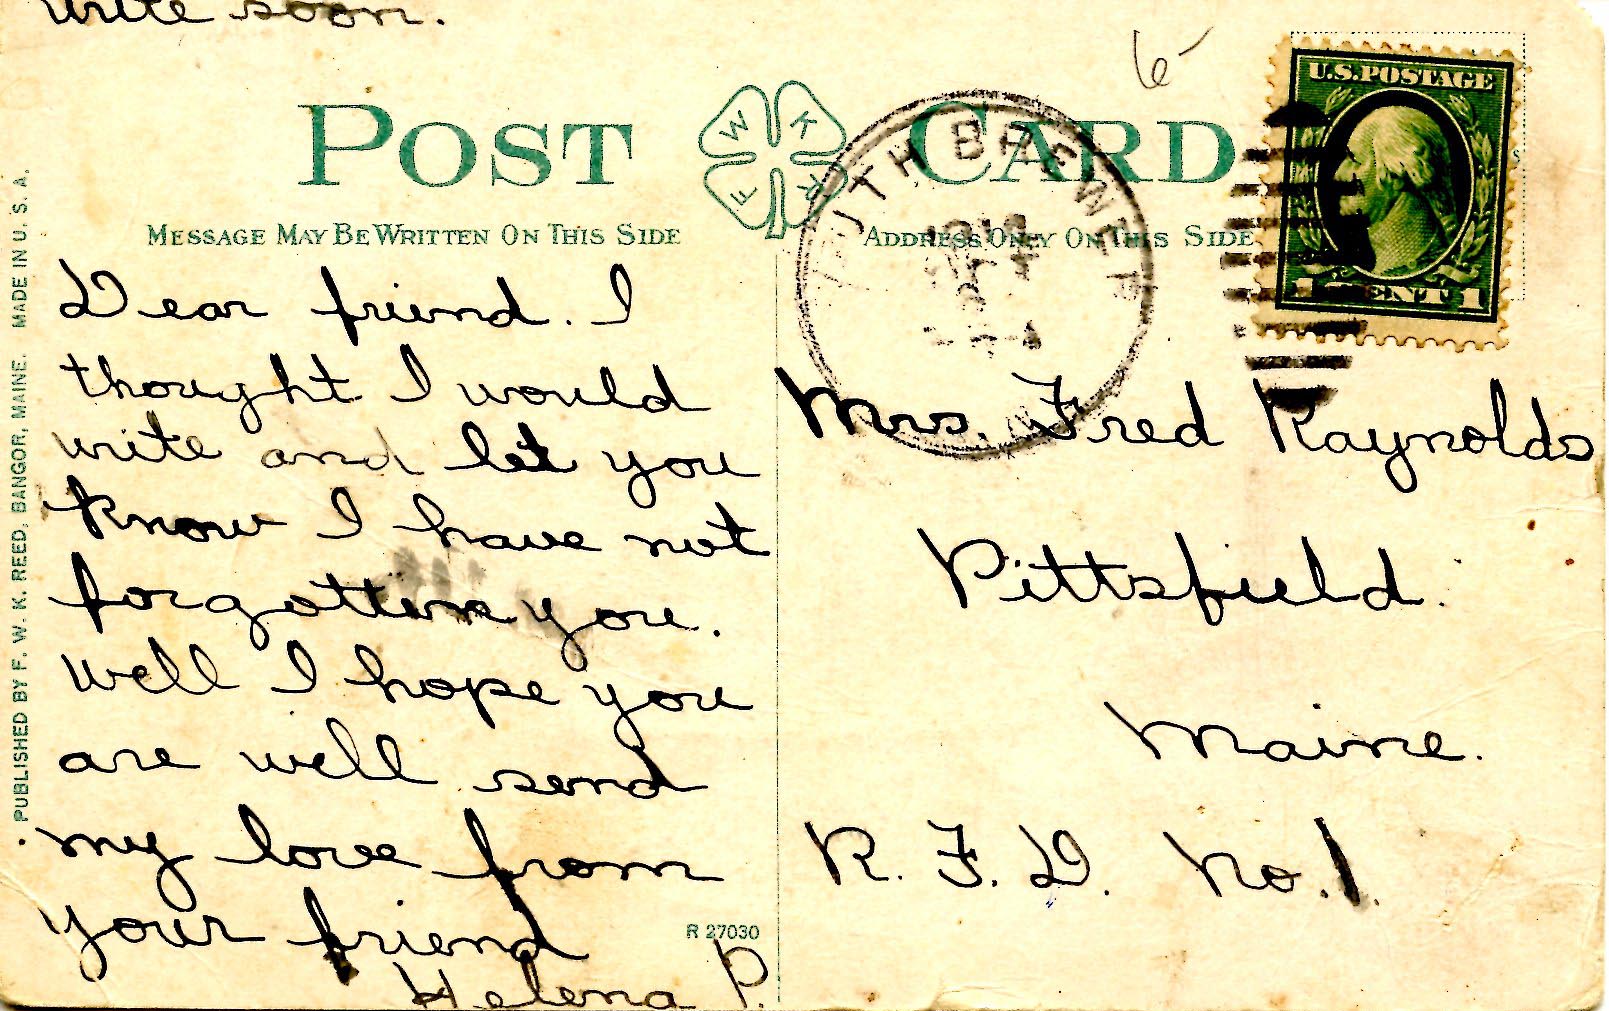 write soon.
6
POST CARD
W K F R
MESSAGE MAY BE WRITTEN ON THIS SIDE
ADDRESS ONLY ON THIS SIDE
U.S.POSTAGE
1 CENT 1
SOUTH BREWER
Dear friend. I
thought I would
write and let you
know I have not
forgotten you.
Well I hope you
are well send
my love from
your friend
Helena P.
R 27030
Mrs. Fred Raynolds
Pittsfield.
Maine.
R. F. D. No. 1.
PUBLISHED BY F. W. K. REED, BANGOR, MAINE. MADE IN U. S. A.